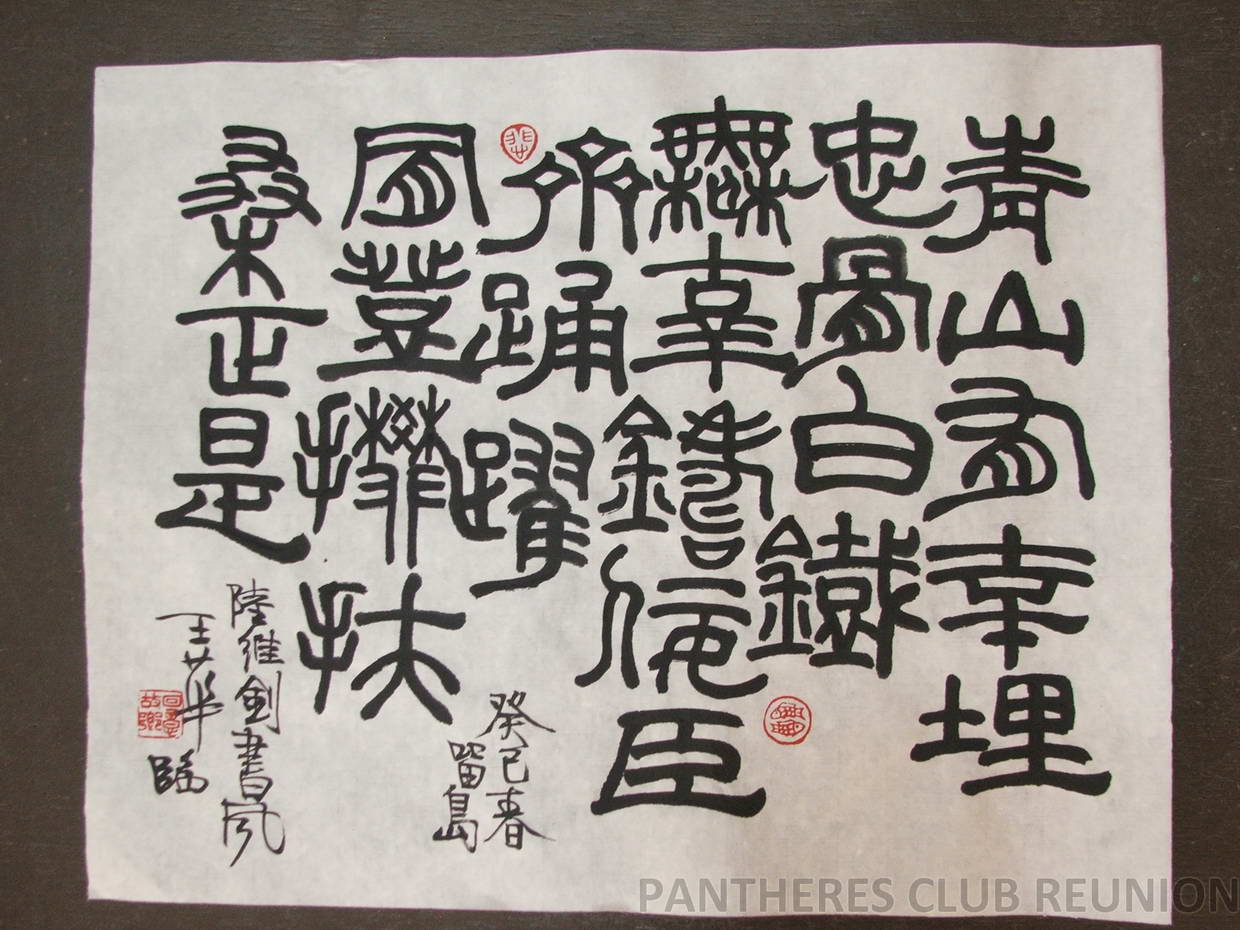 青山有幸埋
忠骨白鐵
無辜鑄佞臣
踊躍
登攀扶
桑正是
癸巳春
留島
陸維釗書風
王華臨
PANTHERES CLUB REUNION